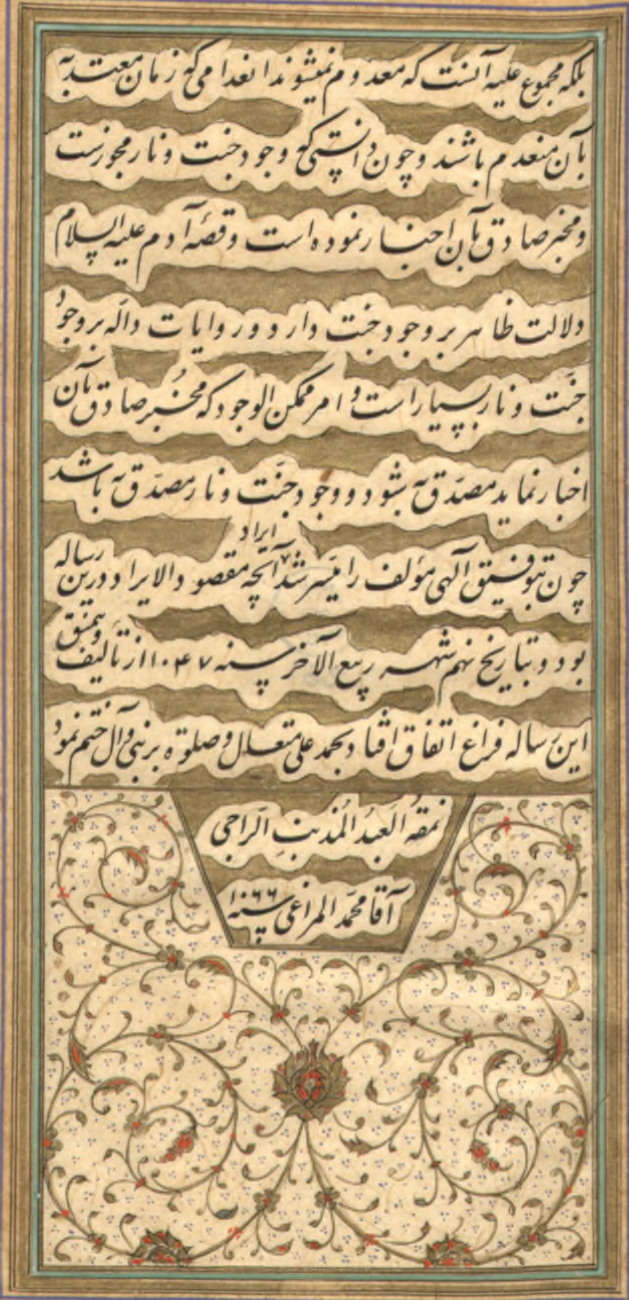 بلکه مجموع علیه آنست که معدوم نمیشوند انعدامی که زمان معتد به
بآن منعدم باشند و چون دانستی که وجود جنت و نار مجوزست
و مخبر صادق بآن اخبار نموده است و قصّهٔ آدم علیه السلام
دلالت ظاهر بر وجود جنت دارد و روایات دالّه بر وجود
جنّت و نار بسیار است و امر ممکن الوجود که مخبر صادق بآن
اخبار نماید مصدّق به شود و وجود جنّت و نار مصدّق به باشد
چون بتوفیق الهی مؤلف را میسّر شد ایراد آنچه مقصود والایراد درین رساله
بود و بتاریخ نهم شهر ربیع الآخر سنه ۱۰۴۷ از تألیف و تنمیق
این رساله فراغ اتفاق افتاد بحمد علی متعال و صلوة بر نبی و آل ختم نمود
نمقه العبد المذنب الراجی
آقا محمّد المراغی سنه ۱۰۶۶